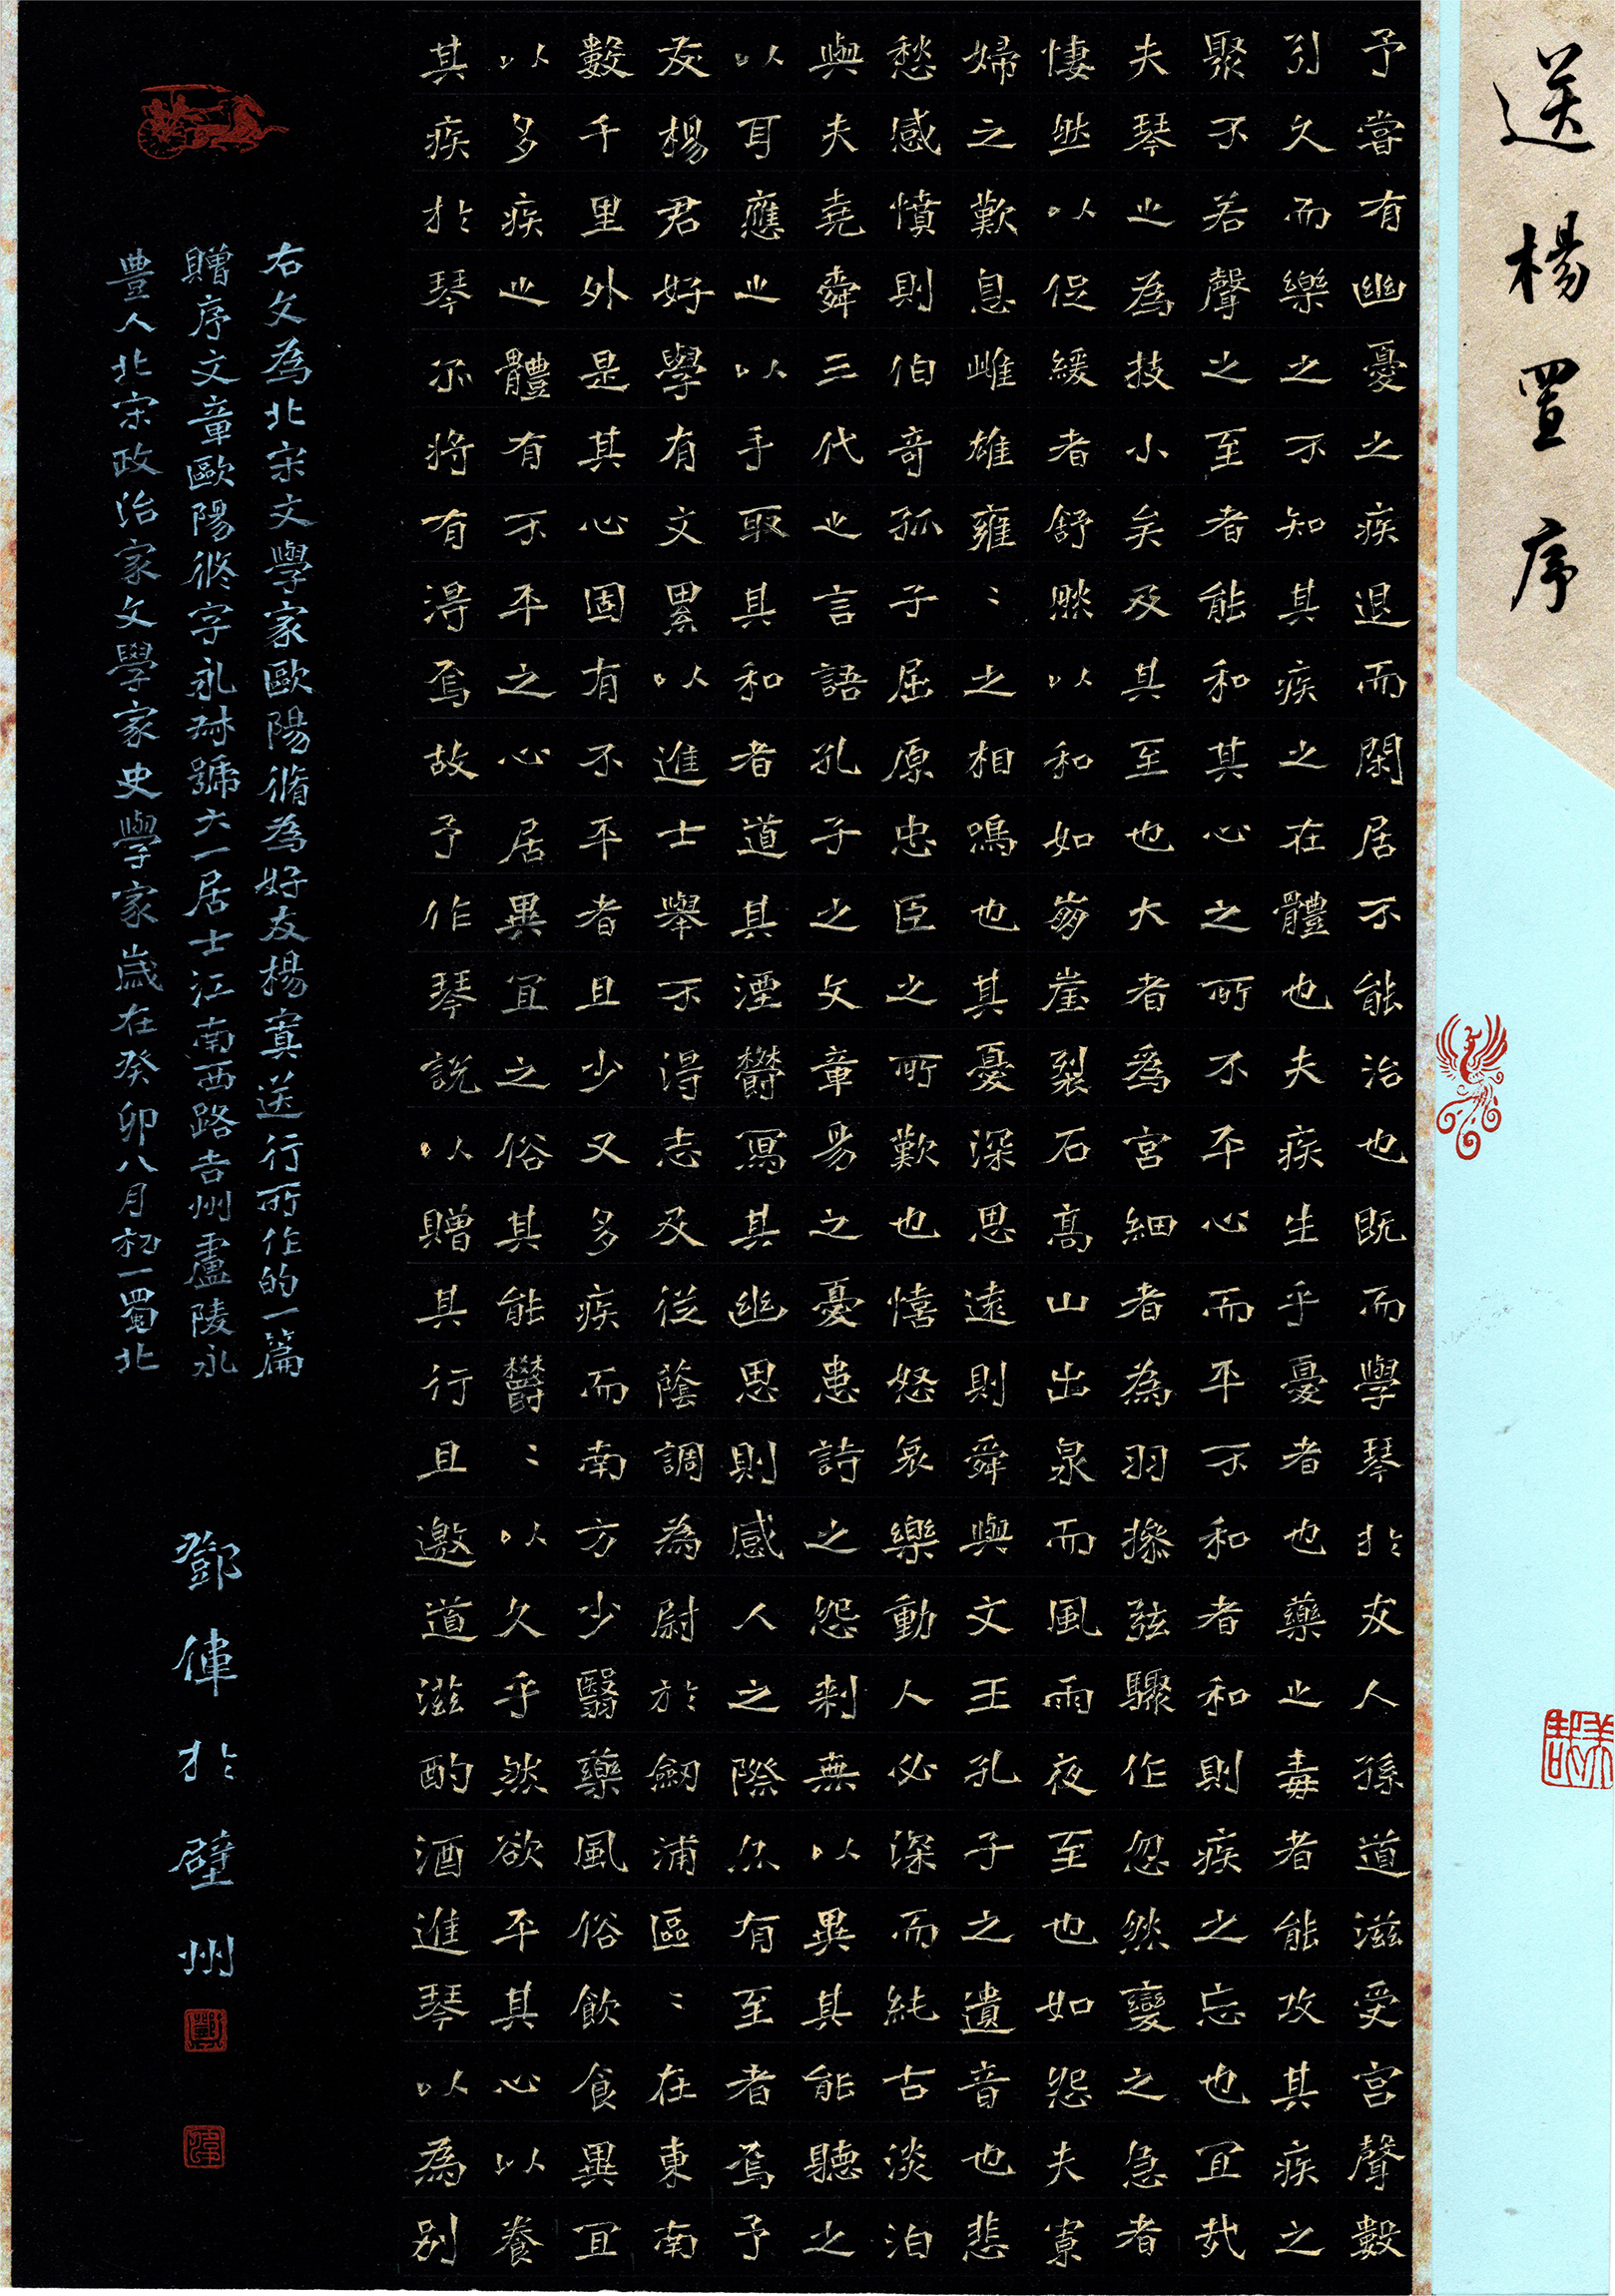 送楊置序
予嘗有幽憂之疾退而閑居不能治也既而學琴於友人孫道滋受宮聲數
引久而樂之不知其疾之在體也夫疾生乎憂者也藥之毒者能攻其疾之
聚不若聲之至者能和其心之所不平心而平不和者和則疾之忘也宜哉
夫琴之為技小矣及其至也大者為宮細者為羽操弦驟作忽然變之急者
悽然以促緩者舒然以和如崩崖裂石高山出泉而風雨夜至也如怨夫寡
婦之歎息雌雄雍〻之相鳴也其憂深思遠則舜與文王孔子之遺音也悲
愁感憤則伯奇孤子屈原忠臣之所歎也憘怒哀樂動人必深而純古淡泊
與夫堯舜三代之言語孔子之文章易之憂患詩之怨刺無以異其能聽之
以耳應之以手取其和者道其湮鬱寫其幽思則感人之際亦有至者焉予
友楊君好學有文累以進士舉不得志及從蔭調為尉於劍浦區〻在東南
數千里外是其心固有不平者且少又多疾而南方少醫藥風俗飲食異宜
以多疾之體有不平之心居異宜之俗其能鬱〻以久乎然欲平其心以養
其疾於琴亦將有得焉故予作琴說以贈其行且邀道滋酌酒進琴以為別
右文為北宋文學家歐陽脩為好友楊寘送行所作的一篇
贈序文章歐陽修字永叔號六一居士江南西路吉州盧陵永
豊人北宋政治家文學家史學家歲在癸卯八月初一蜀北
鄧偉於壁州
鄧
偉